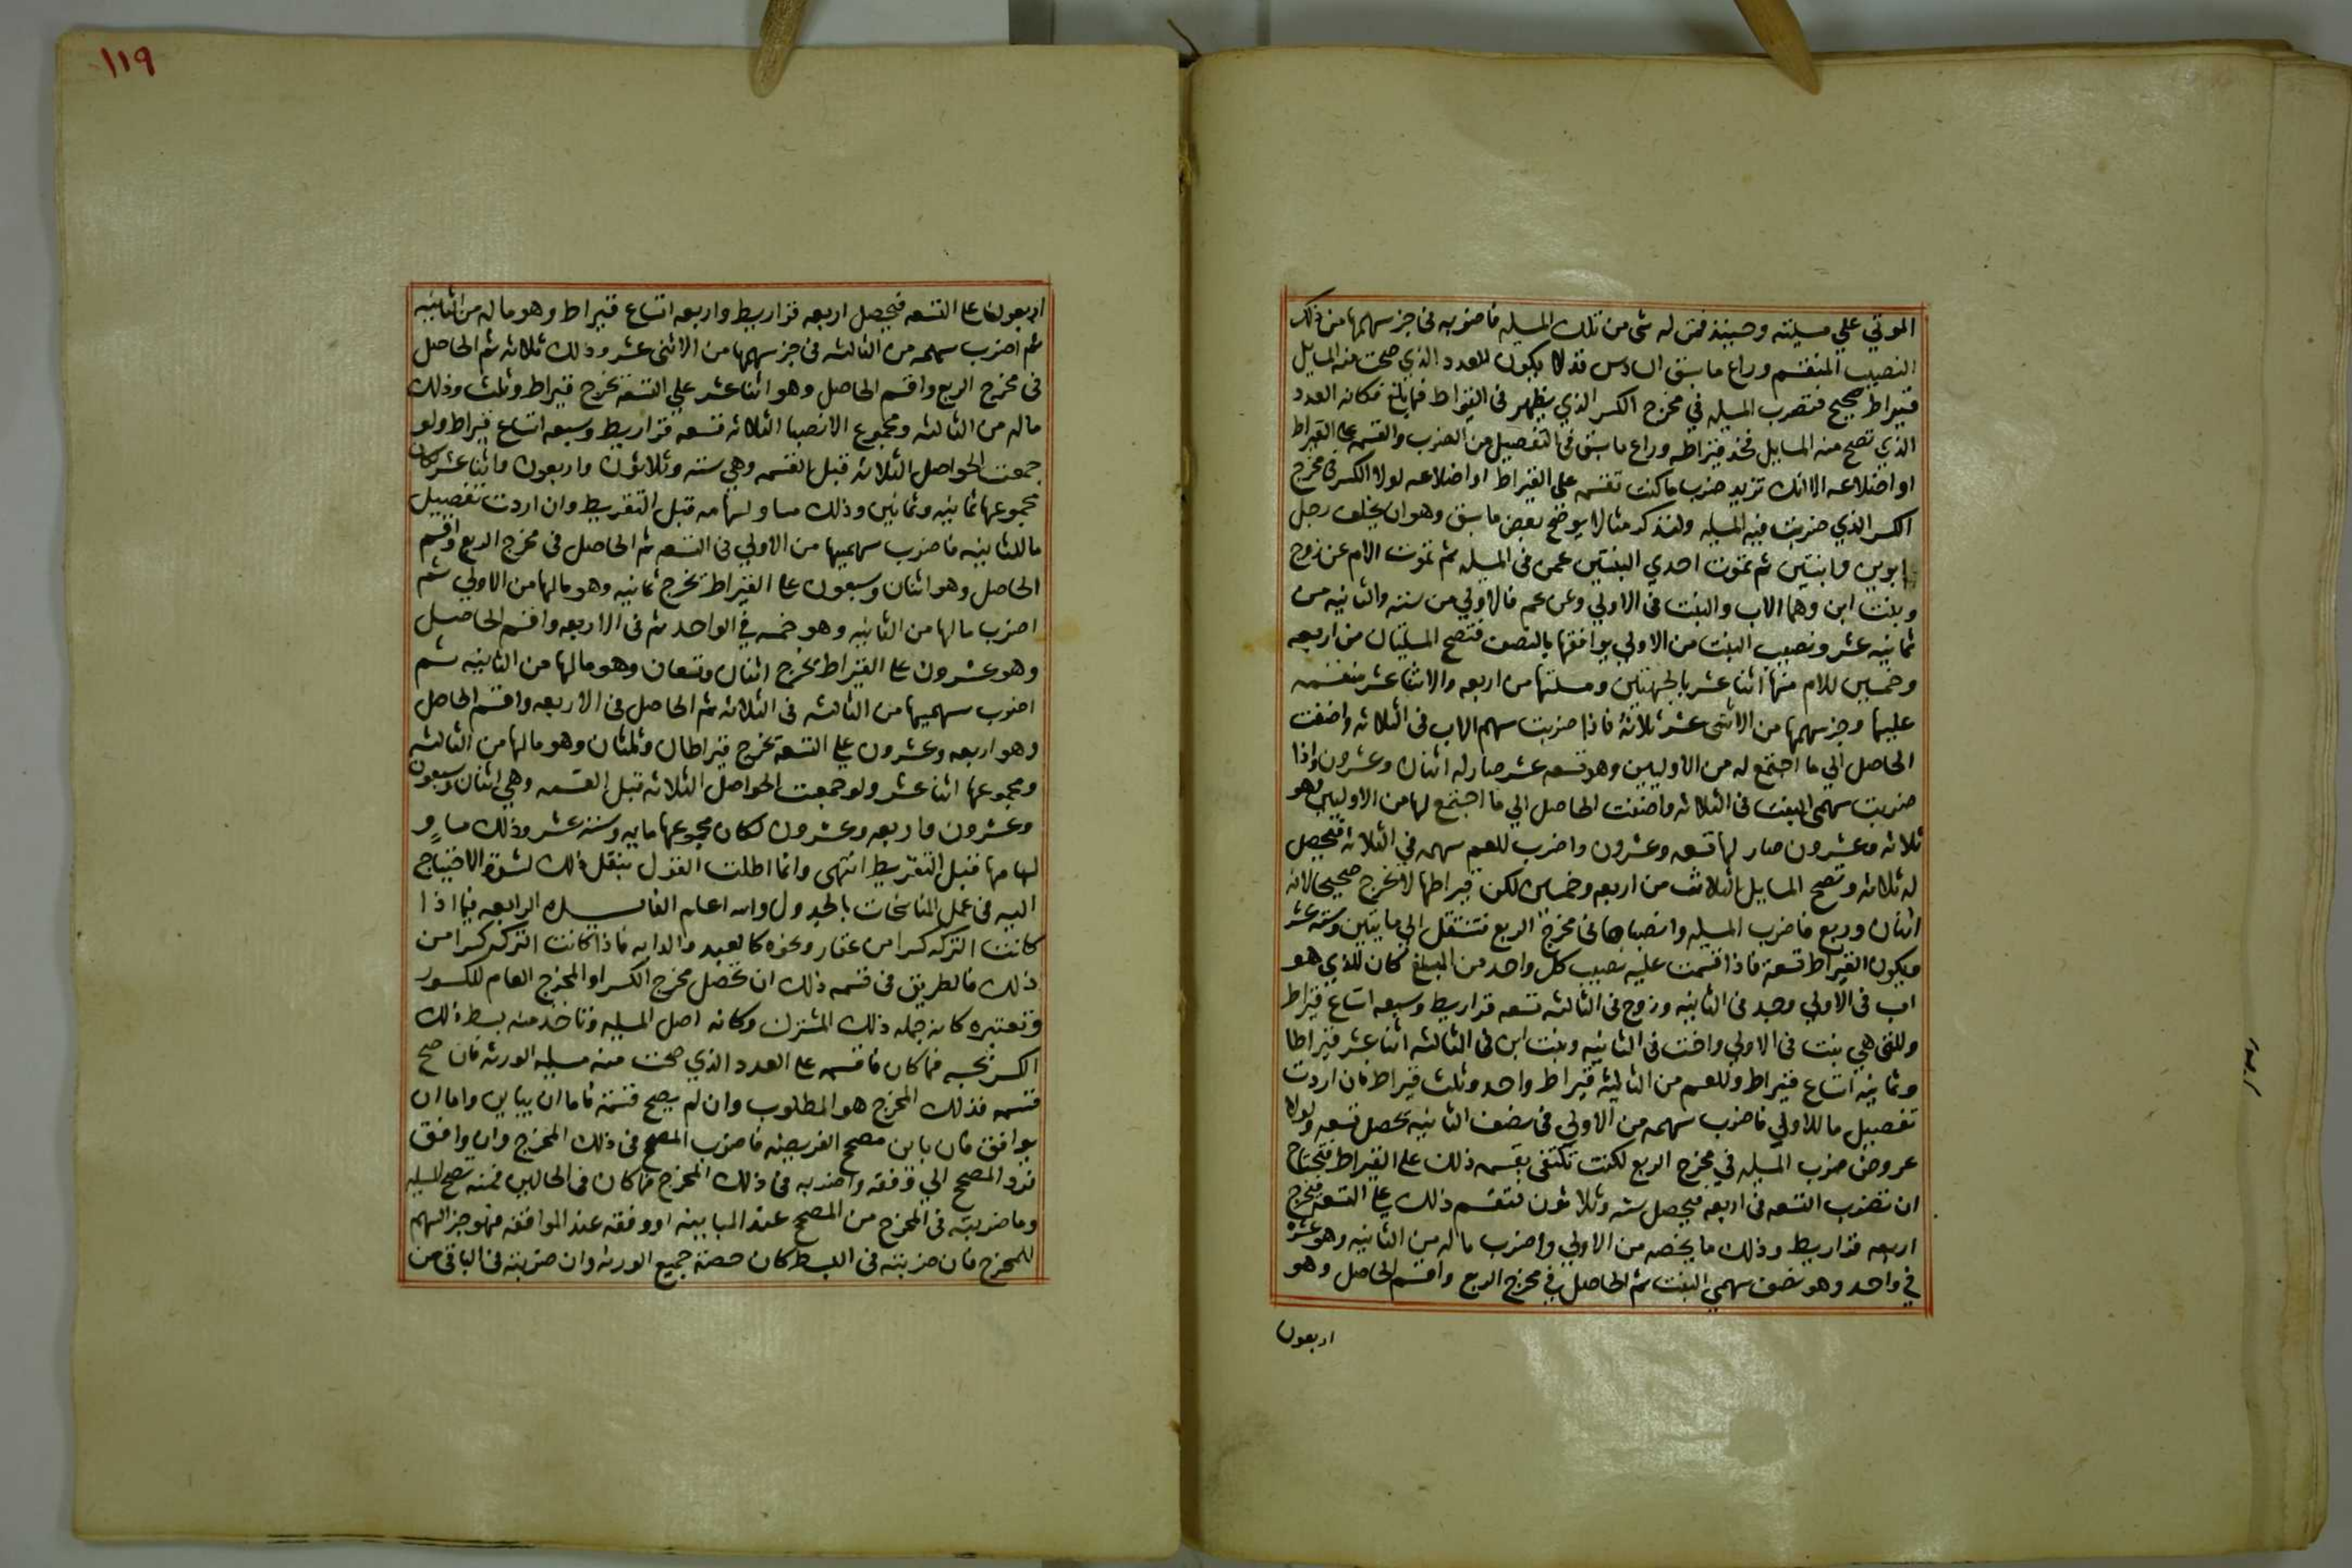 الموتي علي مسيلته وحينيذ فمن له شي من تلك المسيله فاضربه في جز سهمها من ذلك
النصيب المنقسم وراع ما سبق السادس قد لا يكون للعدد الذي صحت منه المسايل
قيراط صحيح فتضرب المسيله في مخرج الكسر الذي يظهر في القيراط فما بلغ فكانه العدد
الذي تصح منه المسايل فخذ قيراطه وراع ما سبق في التفصيل من الضرب والقسمه علي القيراط
او اضلاعه الا انك تزيد ضرب ما كنت تقسمه علي القيراط او اضلاعه لولا الكسر في مخرج
الكسر الذي ضربت فيه المسيله ولنذكر مثالا يوضح بعض ما سبق وهو ان يخلف رجل
ابوين وابنتين ثم تموت احدي البنتين عمن في المسيله ثم تموت الام عن زوج
وبنت ابن وهما الاب والبنت في الاولي وعن عم فالاولي من سته والثانيه من
ثمانيه عشر ونصيب البنت من الاولي يوافقها بالنصف فتصح المسيلتان من اربعه
وخمسين للام منها اثنا عشر بالجهتين ومسلتها من اربعه والاثنا عشر منقسمه
عليها وجز سهمها من الاثني عشر ثلاثة فاذا ضربت سهم الاب في الثلاثه واضفت
الحاصل الي ما اجتمع له من الاوليين وهو تسعه عشر صار له اثنان وعشرون واذا
ضربت سهمي البنت في الثلاثه واضفت الحاصل الي ما اجتمع لها من الاوليين وهو
ثلاثه وعشرون صار لها تسعه وعشرون واضرب للعم سهمه في الثلاثة فيحصل
له ثلاثه وتصح المسايل الثلاث من اربعه وخمسين لكن قيراطها لا يخرج صحيحا لانه
اثنان وربع فاضرب المسيله وانصباها في مخرج الربع فتنتقل الي مايتين وسته عشر
ويكون القيراط تسعة فاذا قسمت عليه نصيب كل واحد من المبلغ كان للذي هو
اب في الاولي وجد في الثانيه وزوج في الثالثه تسعه قراريط وسبعه اتساع قيراط
وللتي هي بنت في الاولي واخت في الثانيه وبنت ابن في الثالثه اثنا عشر قيراطا
وثمانيه اتساع قيراط وللعم من الثالثه قيراط واحد وثلث قيراط فان اردت
تفصيل ما للاولي فاضرب سهمه من الاولي في نصف الثانيه يحصل تسعه ولولا
عروض ضرب المسيله في مخرج الربع لكنت تكتفي بقسمه ذلك علي القيراط فتحتاج
ان تضرب التسعه في اربعه فيحصل سته وثلاثون فتقسم ذلك علي التسعه فيخرج
اربعه قراريط وذلك ما يخصه من الاولي واضرب ما له من الثانيه وهو عشرة
في واحد وهو نصف سهمي البنت ثم الحاصل في مخرج الربع واقسم الحاصل وهو
اربعون
١١٩
اربعون علي التسعه فيحصل اربعه قراريط واربعه اتساع قيراط وهو ما له من الثانيه
ثم اضرب سهمه من الثالثه في جز سهمها من الاثني عشر وذلك ثلاثه ثم الحاصل
في مخرج الربع واقسم الحاصل وهو اثنا عشر علي التسعة يخرج قيراط وثلث وذلك
ماله من الثالثه ومجموع الانصبا الثلاثه تسعه قراريط وسبعه اتساع قيراط ولو
جمعت الحواصل الثلاثه قبل القسمه وهي سته وثلاثون واربعون واثنا عشر كان
مجموعها ثمانيه وثمانين وذلك مساو لسهامه قبل التقريط وان اردت تفصيل
ما للثانيه فاضرب سهميها من الاولي في التسعه ثم الحاصل في مخرج الربع واقسم
الحاصل وهو اثنان وسبعون علي القيراط يخرج ثمانيه وهو مالها من الاولي ثم
اضرب مالها من الثانيه وهو خمسه في الواحد ثم في الاربعه واقسم الحاصل
وهو عشرون علي القيراط يخرج اثنان وتسعان وهو مالها من الثانيه ثم
اضرب سهميها من الثالثه في الثلاثه ثم الحاصل في الاربعه واقسم الحاصل
وهو اربعه وعشرون علي التسعة يخرج قيراطان وثلثان وهو مالها من الثالثه
ومجموعها اثنا عشر ولو جمعت الحواصل الثلاثه قبل القسمه وهي اثنان وسبعون
وعشرون واربعه وعشرون لكان مجموعها مايه وسته عشر وذلك مساوٍ
لسهامها قبل التقريط انتهي وانما اطلت القول بنقل ذلك لشدة الاحتياج
اليه في عمل المناسخات بالجدول والله اعلم الرابعه فيما اذا
كانت التركه كسرا من عقار ونحوه كالعبد والدابه فاذا كانت التركه كسرا من
ذلك فالطريق في قسمه ذلك ان تحصل مخرج الكسر او المخرج العام للكسور
وتعتبره كانه جمله ذلك المشترك وكانه اصل المسيله وتاخذ منه بسط ذلك
الكسر بحسبه فما كان فاقسمه علي العدد الذي صحت منه مسيله الورثه فان صح
قسمه فذلك المخرج هو المطلوب وان لم يصح قسمته فاما ان يباين واما ان
يوافق فان باين مصحح الفريضه فاضرب المصحح في ذلك المخرج وان وافق
فرد المصحح الي وفقه واضربه في ذلك المخرج فما كان في الحالين فمنه تصح المسيله
وما ضربته في المخرج من المصحح عند المباينه او وفقه عند الموافقه فهو جز السهم
للمخرج فان ضربته في البسط كان حصة جميع الورثه وان ضربته في الباقي من